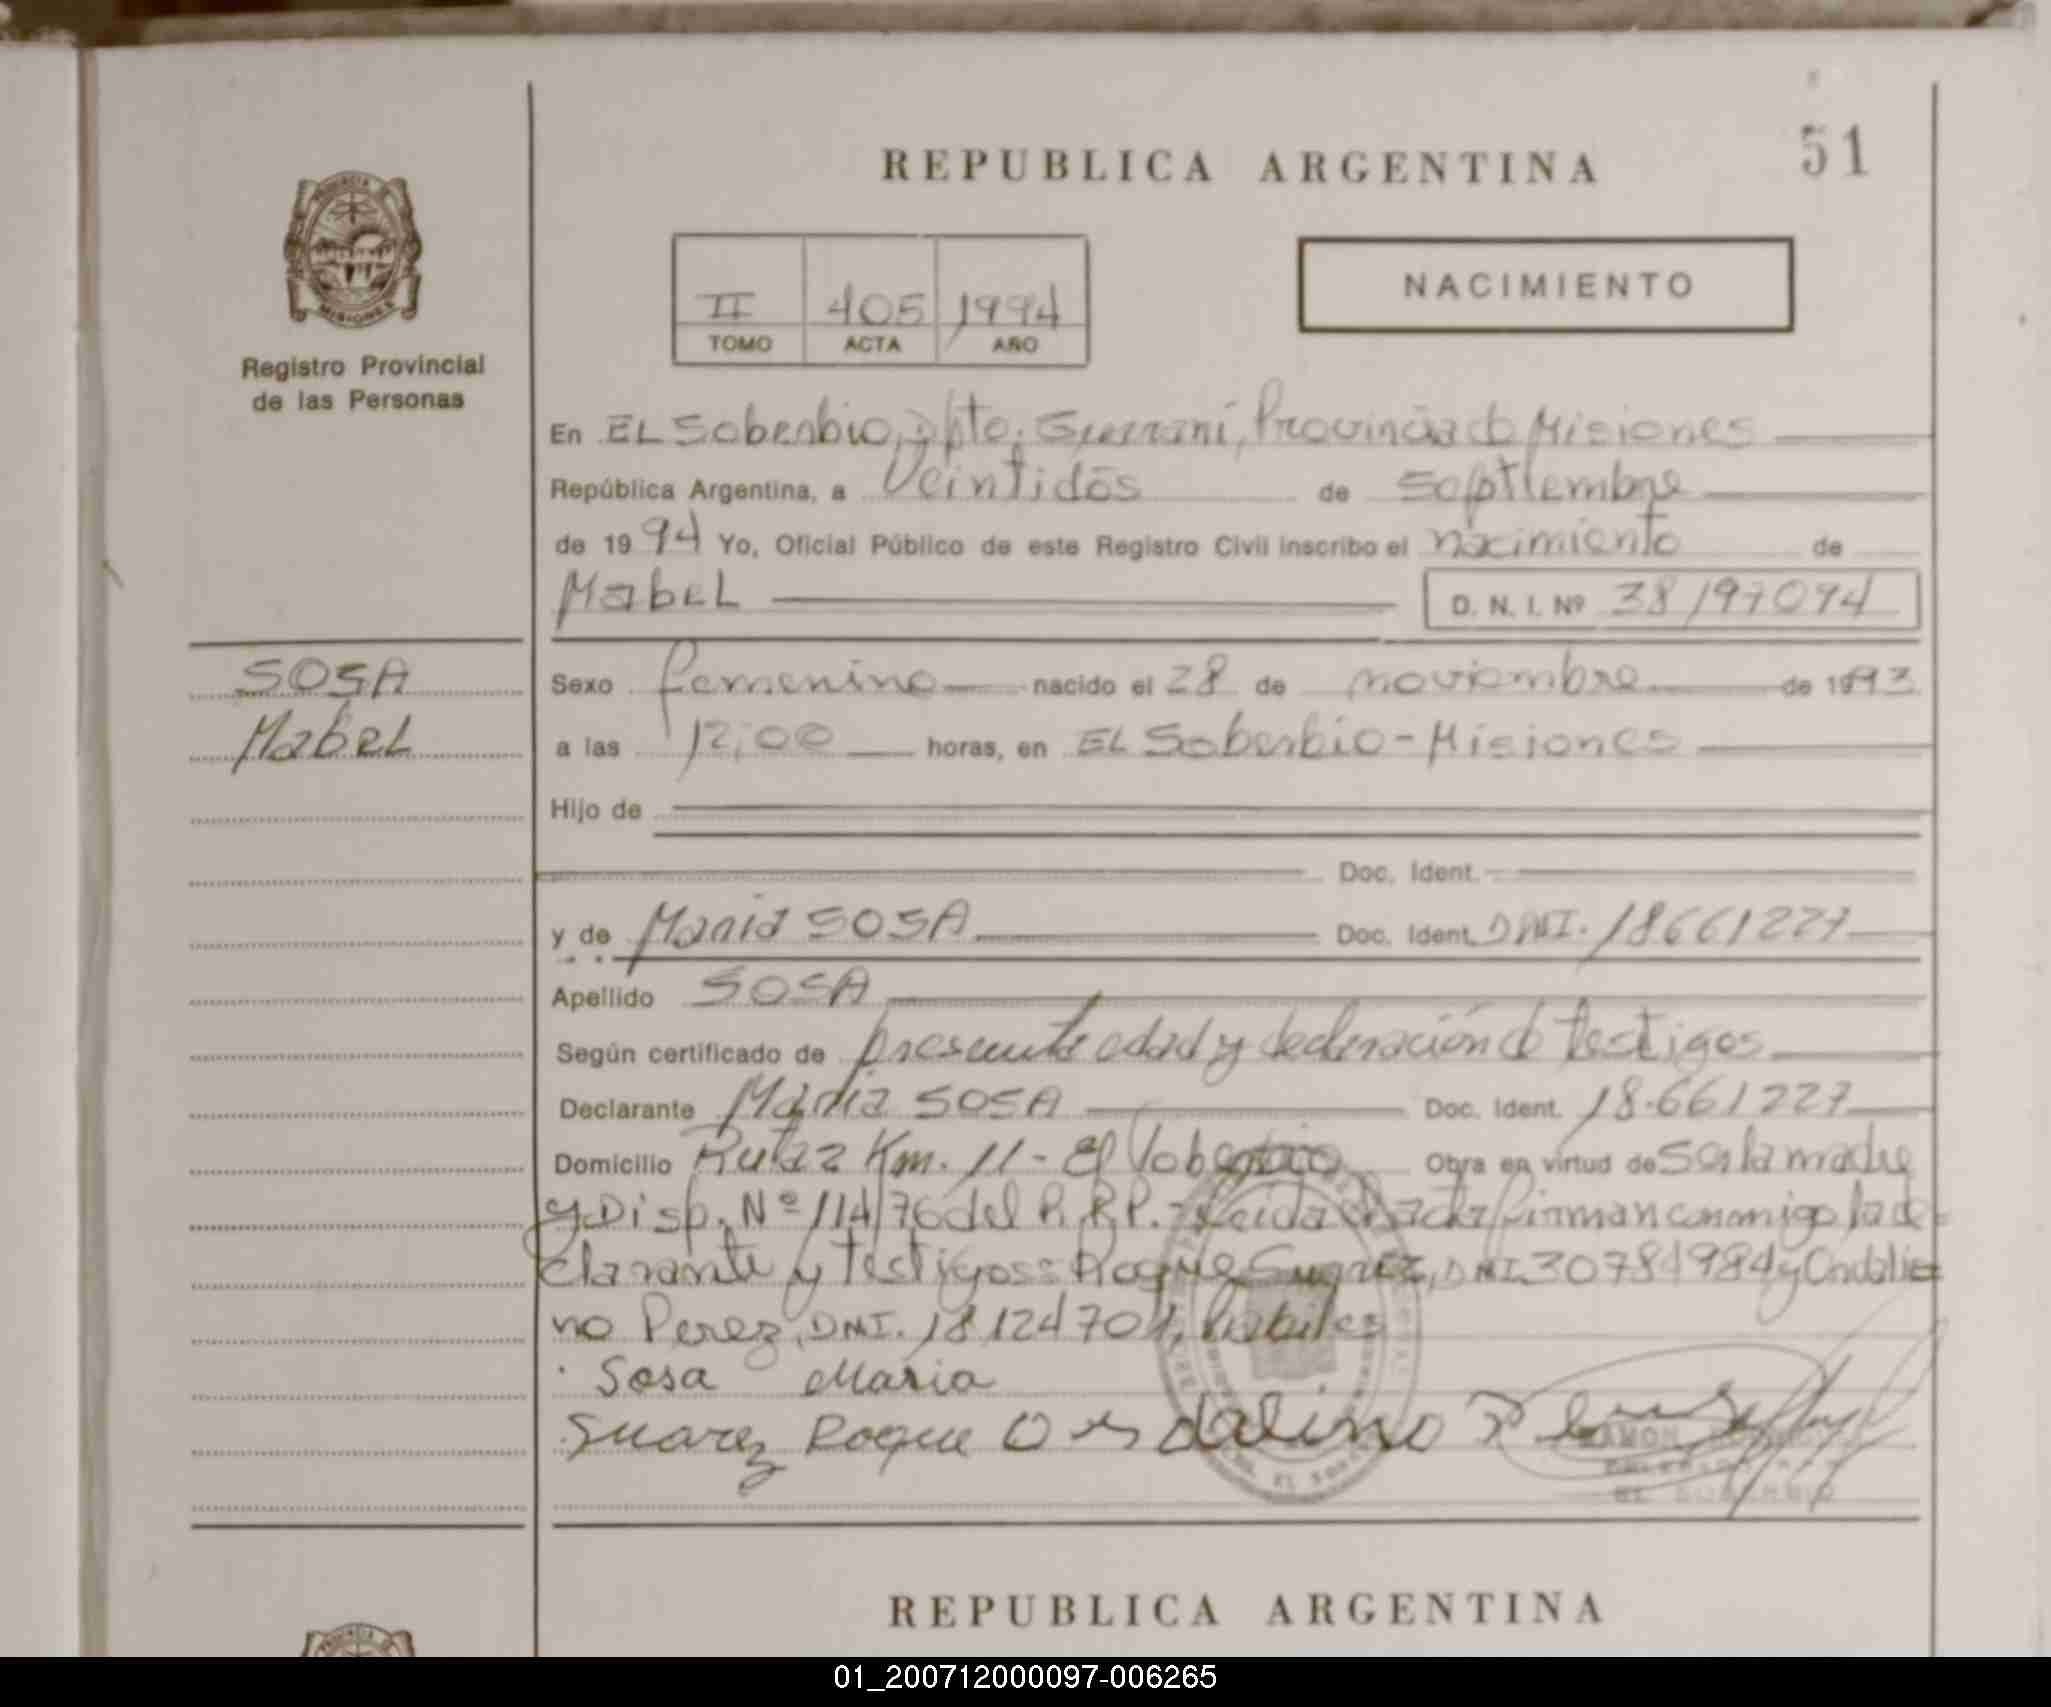 51
REPUBLICA ARGENTINA
II 405 1994
TOMO ACTA AÑO
NACIMIENTO
MISIONES
Registro Provincial
de las Personas
En EL Soberbio, Dpto. Guaraní, Provincia de Misiones
República Argentina, a Veintidós de septiembre
de 1994 Yo, Oficial Público de este Registro Civil inscribo el nacimiento de
MabeL D. N. I. Nº 38197094
SOSA
MabeL
Sexo femenino nacido el 28 de noviembre de 1993
a las 12,00 horas, en EL Soberbio - Misiones
Hijo de
Doc. Ident.
y de Maria SOSA Doc. Ident. DNI. 18661227
Apellido SOSA
Según certificado de presunta edad y declaración de testigos
Declarante Maria SOSA Doc. Ident. 18.661227
Domicilio Ruta 2 Km. 11 - El Soberbio Obra en virtud de ser la madre
y Disp. Nº 114/76 del R.P.P. - Leida el acta firman conmigo la de-
clarante y testigos: Roque Suarez, DNI. 30781984 y Ordali-
no Perez, DNI. 18124701, habiles
Sosa Maria
Suarez Roque Ordalino
EL SOBERBIO
REPUBLICA ARGENTINA
01_200712000097-006265